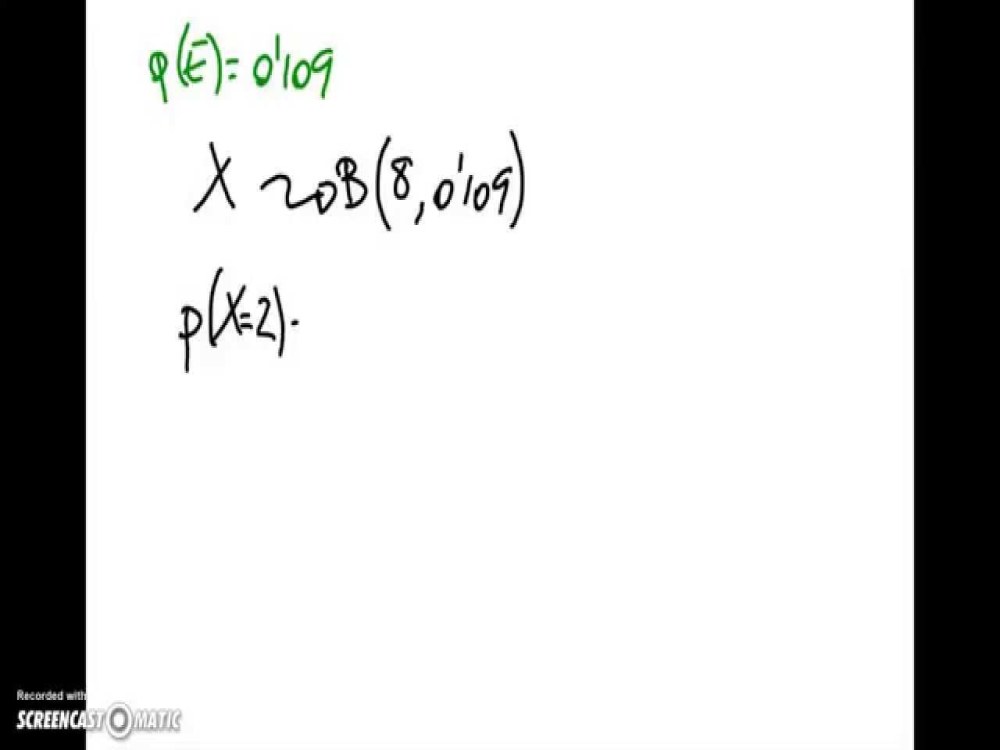 p(E)= 0'109
X ~→ B(8, 0'109)
p(X=2) -
Recorded with
SCREENCAST O MATIC